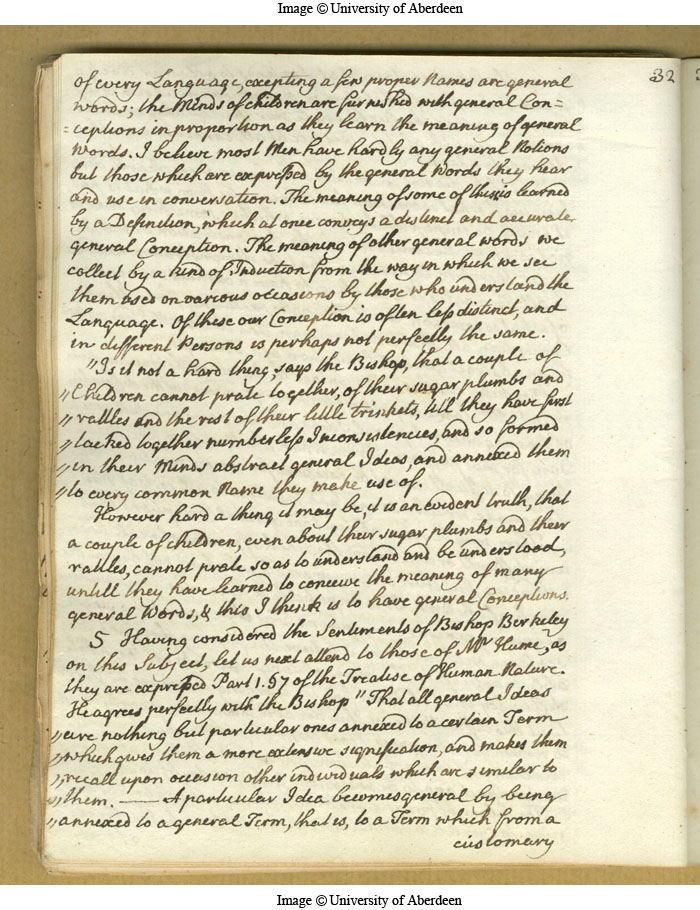 Image © University of Aberdeen
32
of every Language, excepting a few proper Names are general
words; the Minds of children are furnished with general Con=
=ceptions in proportion as they learn the meaning of general
words. I believe most Men have hardly any general Notions
but those which are expressed by the general Words they hear
and use in conversation. The meaning of some of these is learned
by a Definition, which at once conveys a distinct and accurate
general Conception. The meaning of other general words we
collect by a kind of Induction from the way in which we see
them used on various occasions by those who understand the
Language. Of these our Conception is often less distinct, and
in different Persons is perhaps not perfectly the same.
"Is it not a hard thing, says the Bishop, that a couple of
"Children cannot prate together, of their sugar plumbs and
"rattles and the rest of their little trinkets, till they have first
"tacked together numberless Inconsistencies, and so formed
"in their Minds abstract general Ideas, and annexed them
"to every common Name they make use of.
However hard a thing it may be, it is an evident truth, that
a couple of children, even about their sugar plumbs and their
rattles, cannot prate so as to understand and be understood,
untill they have learned to conceive the meaning of many
general Words, & this I think is to have general Conceptions.
5 Having considered the Sentiments of Bishop Berkeley
on this Subject, let us next attend to those of Mr Hume, as
they are expressed Part 1. §7 of the Treatise of Human Nature.
He agrees perfectly with the Bishop "That all general Ideas
"are nothing but particular ones annexed to a certain Term
"which gives them a more extensive signification, and makes them
"recall upon occasion other individuals which are similar to
"them. — A particular Idea becomes general by being
"annexed to a general Term, that is, to a Term which from a
customary
Image © University of Aberdeen